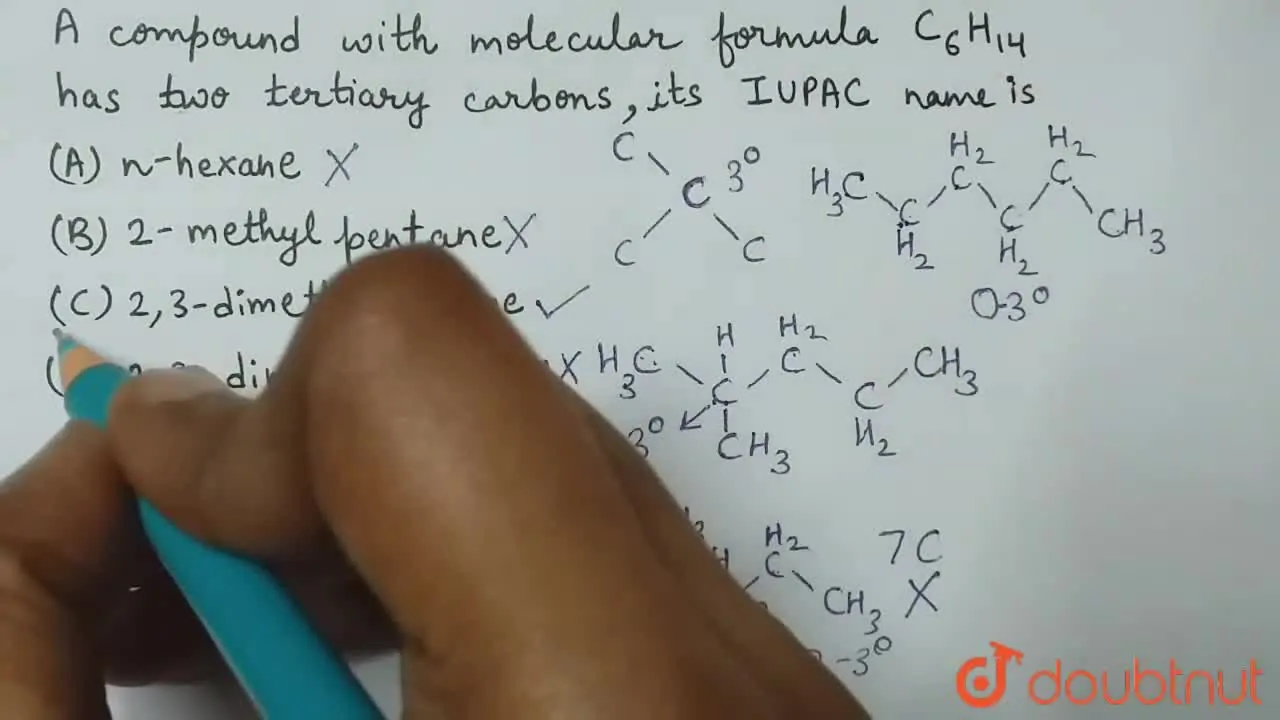 A compound with molecular formula C₆H₁₄
has two tertiary carbons, its IUPAC name is
(A) n-hexane X
(B) 2-methyl pentane X
(C) 2,3-dimeth e ✓
( di X
C
C 3°
C C
H₂ H₂
H₃C C C
C C CH₃
H₂ H₂
0-3°
H H₂
H₃C C CH₃
C C
3° CH₃ H₂
H₂ 7C
C X
CH₃
-3°
doubtnut